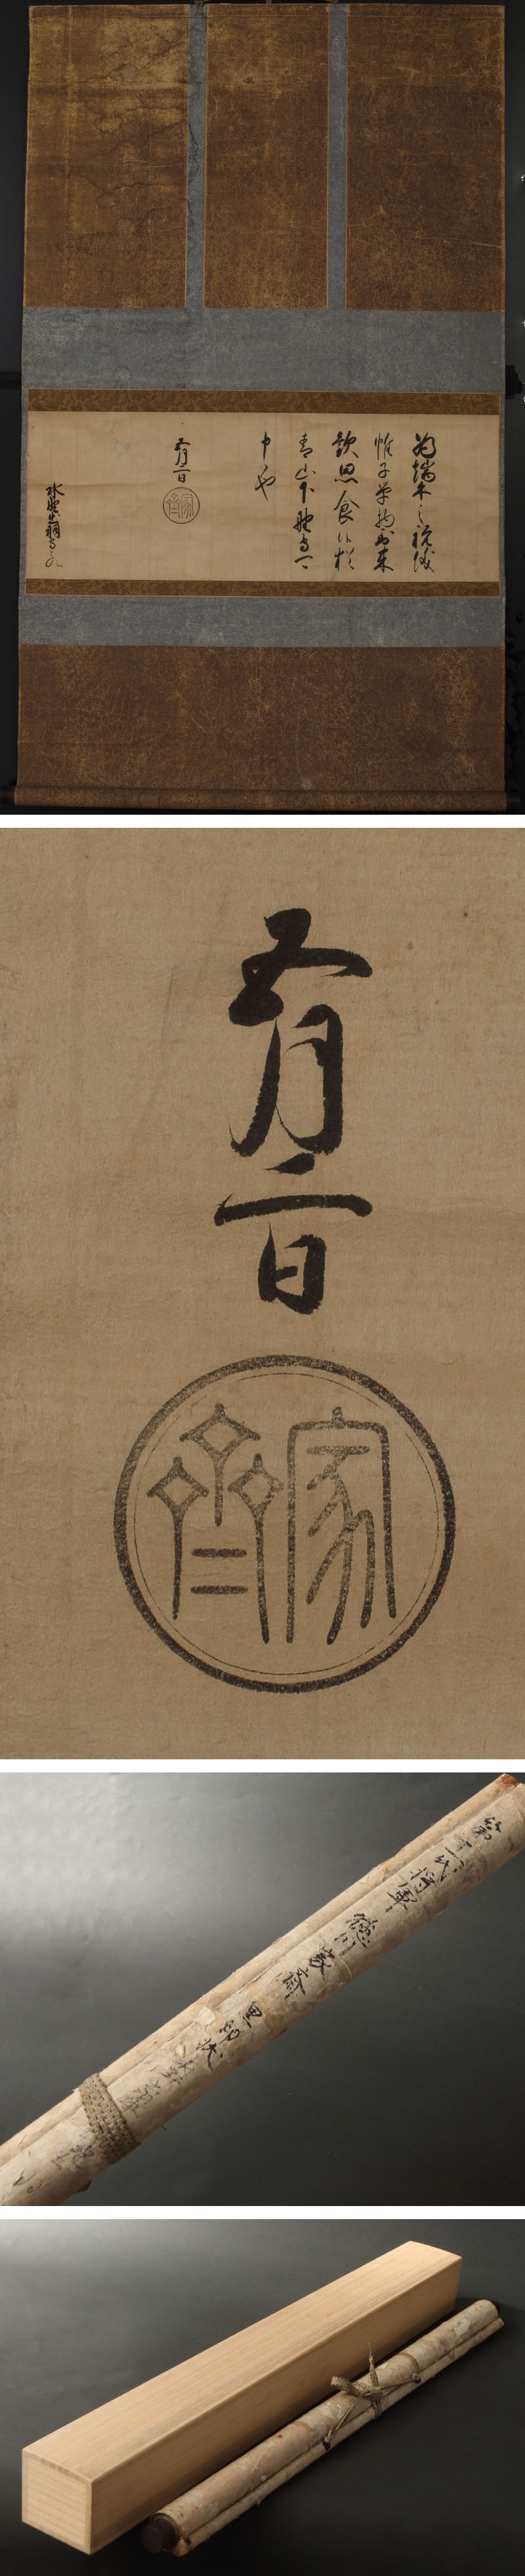 為端午之祝儀
帷子単物到来
歓思食候猶
青山下野守可
申也
五月二日
家齊
水野出羽守との
五月二日
家齊
第十一代将軍 徳川家斎 黒印状